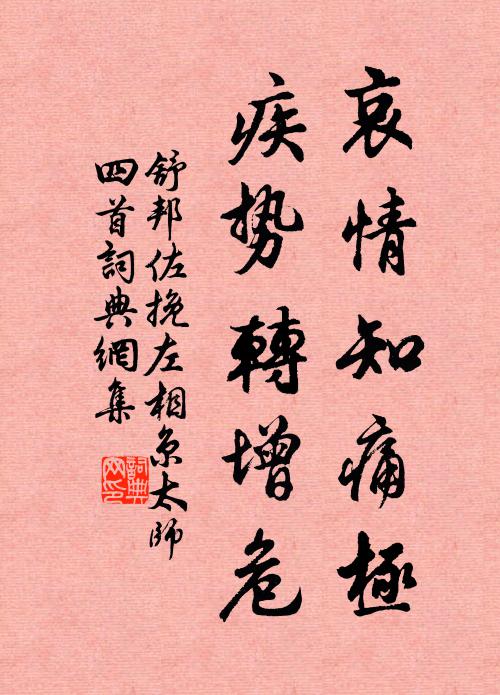 哀情知痛極
疾势轉增危
舒邦佐挽左相京太師
四首詞典網集
詞典网印